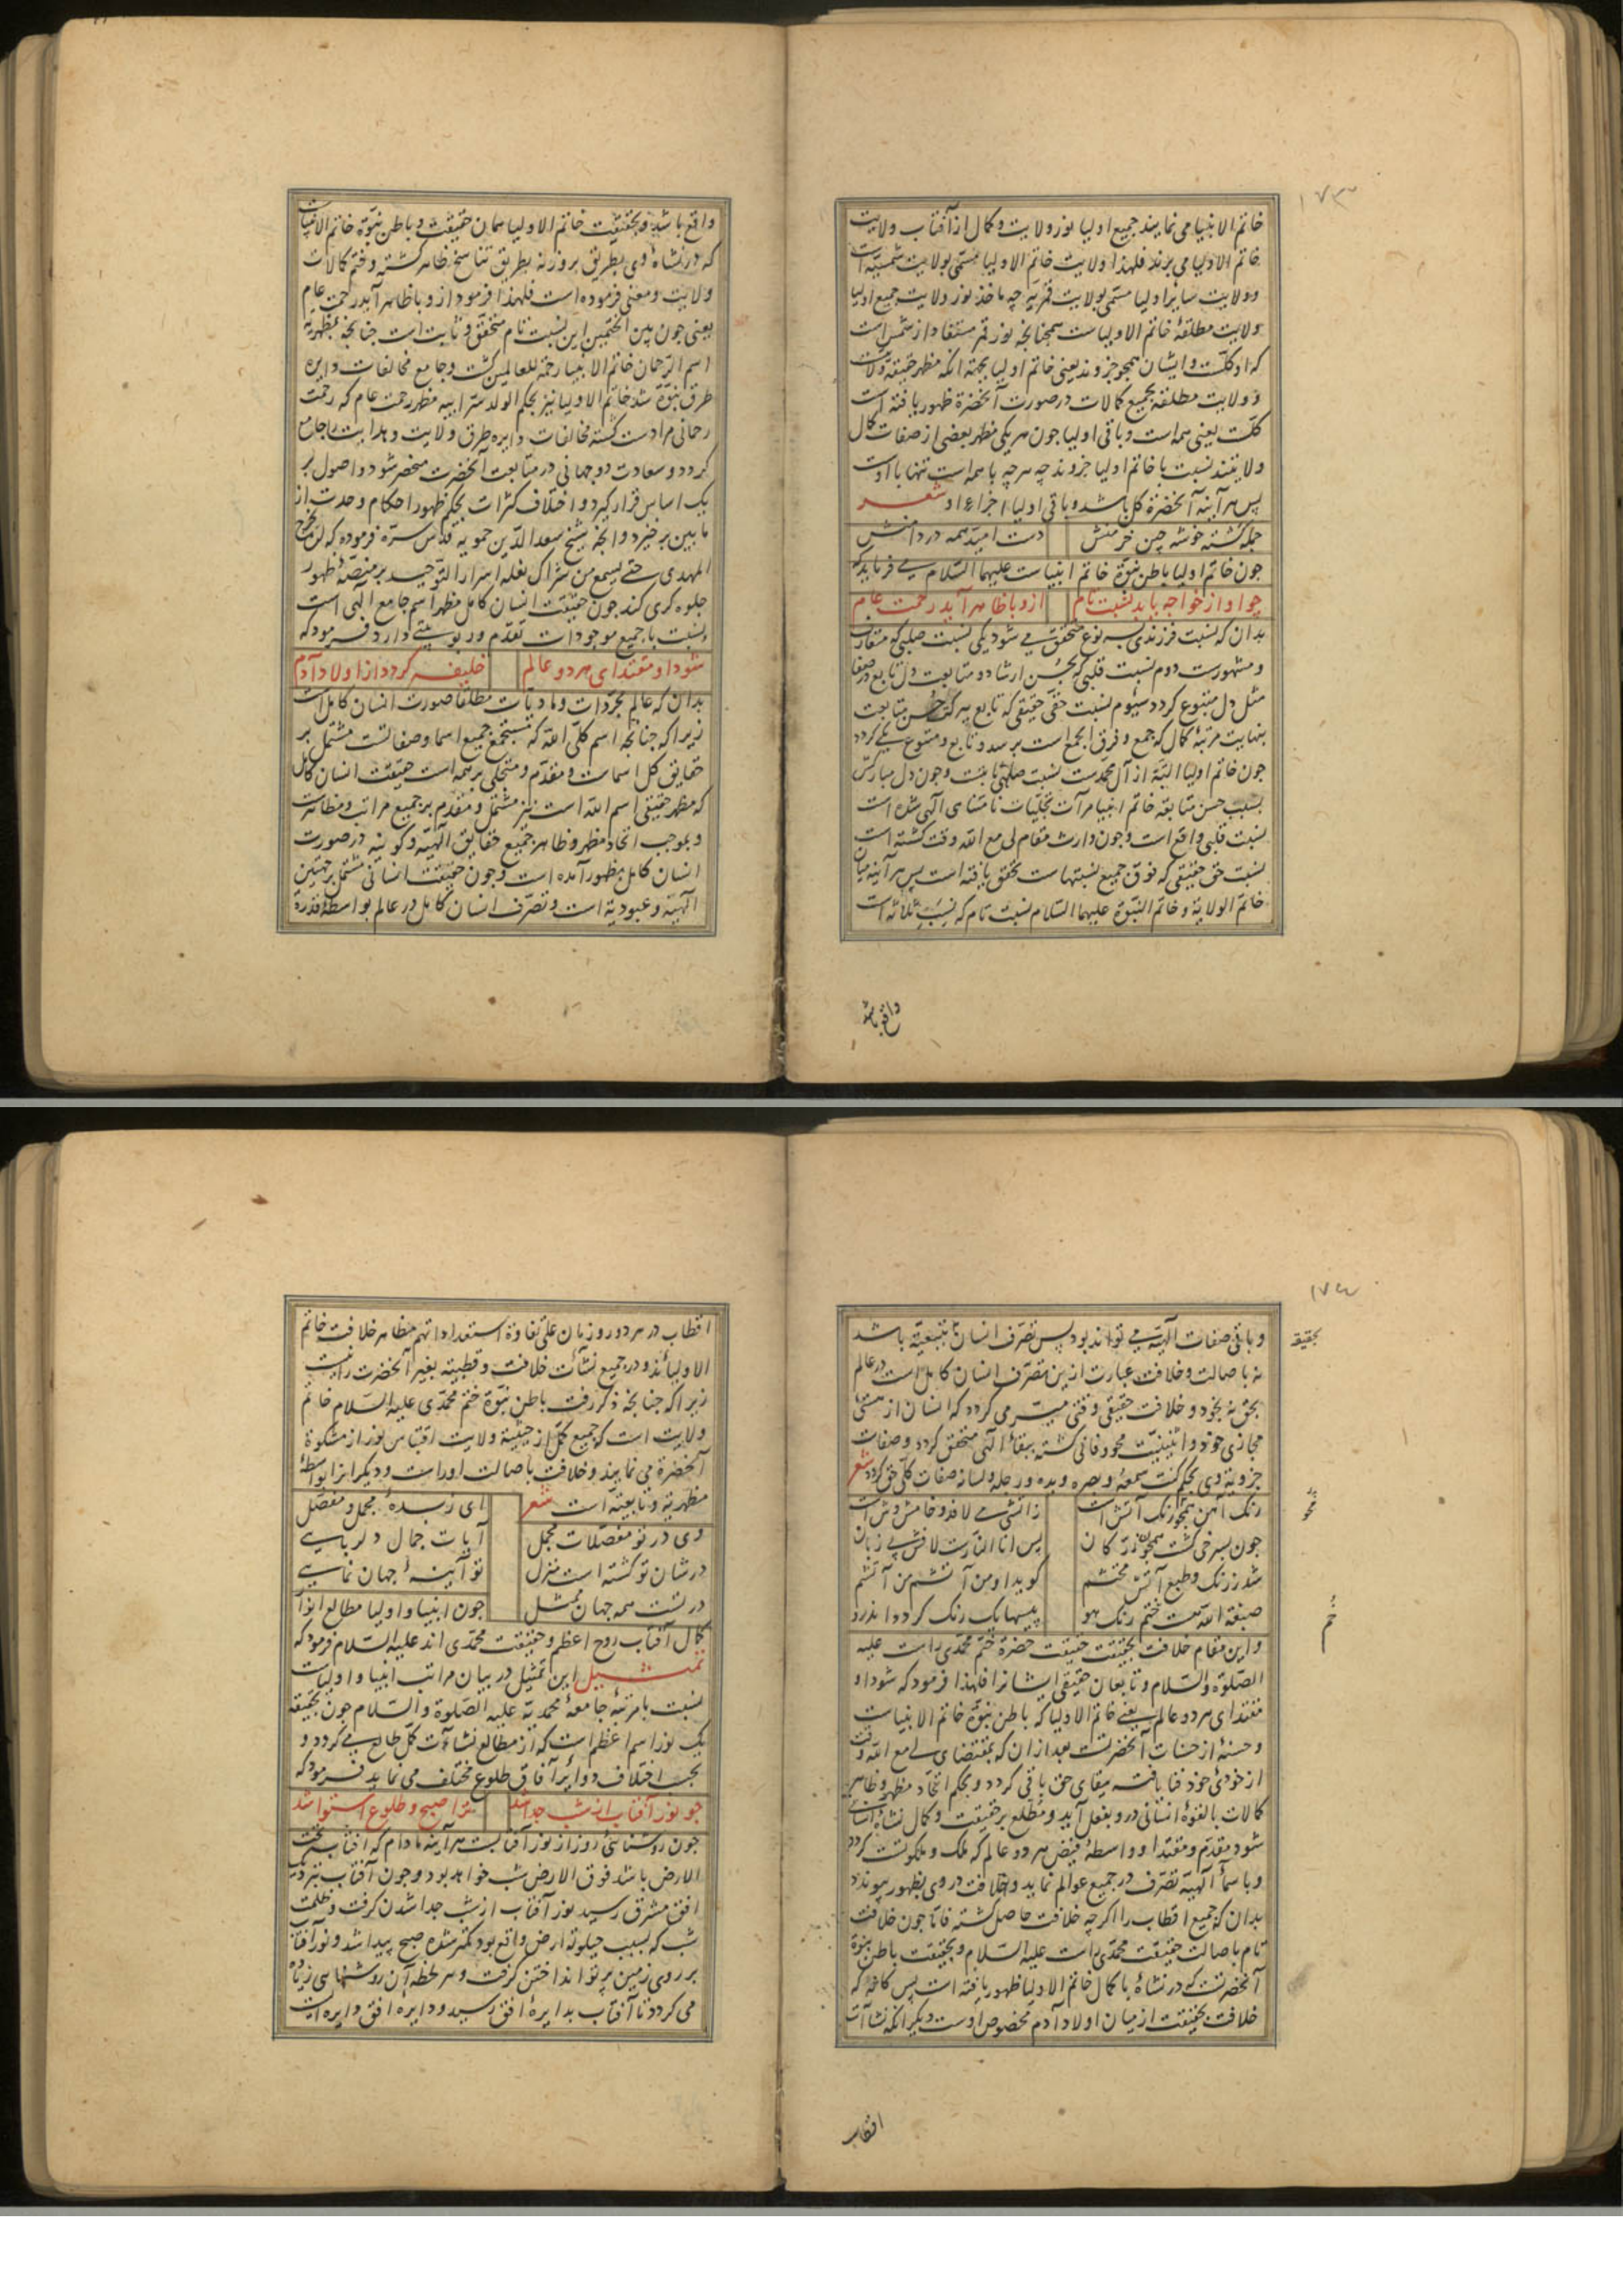 ۱۷۳
خاتم الانبیا می نمایند جمیع اولیا نور ولایت و کمال از آفتاب ولایت
خاتم الاولیا می برند فلهذا ولایت خاتم الاولیا مسمی بولایت شمسیّه است
و ولایت سایر اولیا مسمی بولایت قمریّه چه ماخذ نور ولایت جمیع اولیا
ولایت مطلقهٔ خاتم الاولیاست همچنانچه نور قمر مستفاد از شمس است
که او کلّست و ایشان همچو جزوند یعنی خاتم اولیا بجهة انکه مظهر حقیقة ولایت
و ولایت مطلقه بجمیع کمالات در صورت آنحضرة ظهور یافته است
کلّست یعنی همه است و باقی اولیا چون هر یکی مظهر بعضی از صفات کمال
ولایتند نسبت با خاتم اولیا جزوند چه هرچه با همه است تنها با اوست
پس هر آینه آنحضرة کل باشد و باقی اولیا اجزاء او شعر
جمله کشته خوشه چین خرمنش دست امید همه در دامنش
جون خاتم اولیا باطن نبوّة خاتم انبیاست علیهما السّلام می فرماید که
چو او از خواجه یابد نسبت تام ازو با ظاهر آید رحمت عام
بدان که نسبت فرزندی بسه نوع متحقق می شود یکی نسبت صلبی که متعارف
و مشهورست دوم نسبت قلبی که بحسن ارشاد و متابعت دل تابع در صفا
مثل دل متبوع کردد سیّوم نسبت حقّی حقیقی که تابع ببرکت حسن متابعت
بنهایت مرتبهٔ کمال که جمع و فرق الجمع است برسد و تابع و متبوع یکی کردد
جون خاتم اولیا البتّه از آل محمدست نسبت صلبی ثابتست و جون دل مبارکش
بسبب حسن متابعة خاتم انبیا مرآت تجلیات نامتناهی الٓهی شده است
نسبت قلبی واقع است و جون وارث مقام لی مع اللّه وقت کشته است
نسبت حق حقیقی که فوق جمیع نسبتهاست تحقق یافته است پس هر آینه میان
خاتم الولایة و خاتم النبوّة علیهما السّلام نسبت تام که نسب ثلاثه است
واقع باشد
واقع باشد و بحقیقت خاتم الاولیا همان حقیقت و باطن نبوّة خاتم الانبیاست
که در نشاهٔ وی بطریق بروز نه بطریق تناسخ ظاهر کشته و ختم کمالات
ولایت و معنی فرموده است فلهذا فرمود ازو با ظاهر آید رحمت عام
یعنی جون بین الختمین این نسبت تام متحقق و ثابت است جنانچه بمظهریّة
اسم الرّحمان خاتم الانبیا رحمة للعالمین کشت و جامع مخالفات دایره
طرق نبوّة شد خاتم الاولیا نیز بحکم الولد سرّ ابیه مظهر رحمت عام که رحمت
رحمانی مرادست کشته مخالفات دایره طرق ولایت و هدایت را جامع
کردد و سعادت دو جهانی در متابعت آنحضرت منحصر شود و اصول بر
یک اساس قرار کیرد و اختلاف کثرات بحکم ظهور احکام وحدت از
مابین برخیزد و انچه شیخ سعد الدّین حمویه قدّس سرّه فرموده که لن یخرج
المهدی حتی یسمع من شراک نعله اسرار التّوحید بر منصّهٔ ظهور
جلوه کری کند جون حقیقت انسان کامل مظهر اسم جامع الٓهی است
و نسبت با جمیع موجودات تقدّم و ربوبیتی دارد فرمود که
شود او مقتدای هر دو عالم خلیفه کردد از اولاد آدم
بدان که عالم مجرّدات و مادیات مطلقا صورت انسان کاملست
زیرا که جنانچه اسم کلّی اللّه که مستجمع جمیع اسما و صفاتست مشتمل بر
حقایق کل اسماست و مقدّم و متجلی بر همه است حقیقت انسان کامل
که مظهر حقیقی اسم اللّه است نیز مشتمل و مقدم بر جمیع مراتب و مظاهرست
و بموجب اتحاد مظهر و ظاهر جمیع حقایق الٓهیّه و کونیه در صورت
انسان کامل بظهور آمده است و جون حقیقت انسانی مشتمل بر جهتین
الٓهیّة و عبودیة است و تصرّف انسان کامل در عالم بواسطهٔ قدرة
۱۷۴
و باقی صفات الٓهیّه می تواند بود پس تصرّف انسان بتبعیّة باشد
بحقیقة
نه باصالت و خلافت عبارت ازین تصرّف انسان کامل است در عالم
بحق نه بخود و خلافت حقیقی وقتی میسّر می کردد که انسان از هستی
مجازی خود و اثنینیّت محو و فانی کشته ببقاء الٓهی متحقق کردد و صفات
جزویهٔ وی بحکم کنت سمعه و بصره و یده و رجله و لسانه صفات کلّی حق کردد شعر
رنک آهن همچو رنک آتش است زآتشی می لافد و خامش وش است
جون بسرخی کشت همچون زرّ کان پس انا النّارست لافش بی زبان
شد ز رنک و طبع آتش محتشم کوید او من آتشم من آتشم
صبغة اللّه هست ختم رنک هو پیسها یک رنک کردد اندرو
و این مقام خلافت بحقیقت حقیقت حضرة ختم محمدی راست علیه
الصّلوة و السّلام و تابعان حقیقی ایشانرا فلهذا فرمود که شود او
مقتدای هر دو عالم یعنی خاتم الاولیا که باطن نبوّة خاتم الانبیاست
و حسنهٔ از حسنات آنحضرتست بعد از ان که بمقتضای لی مع اللّه وقت
از خودئ خود فنا یافته ببقای حق باقی کردد و بحکم اتّحاد مظهر و ظاهر
کمالات بالقوهٔ انسانی درو بفعل آید و مطّلع بر حقیقت و کمال نشاة انسانی
شود مقدّم و مقتدا و واسطهٔ فیض هر دو عالم که ملک و ملکوتست کردد
و باسماء الٓهیّه تصرّف در جمیع عوالم نماید و خلافت در وی بظهور پیوندد
بدان که جمیع اقطاب را اکرچه خلافت حاصل کشته فاما جون خلافت
تام باصالت حقیقت محمدی راست علیه السّلام و بحقیقت باطن نبوّة
آنحضرتست که در نشاهٔ با کمال خاتم الاولیا ظهور یافته است پس کانّه که
خلافت بحقیقت از میان اولاد آدم مخصوص اوست و دیکر انکه نشاآت
اقطاب
اقطاب در هر دور و زمان علی تفاوة استعداداتهم مظاهر خلافت خاتم
الاولیااند و در جمیع نشاآت خلافت و قطبیة بغیر آنحضرت را نیست
زیرا که جنانچه ذکر رفت باطن نبوّة ختم محمّدی علیه السّلام خاتم
ولایت است که جمیع کمّل از حیثیّة ولایت اقتباس نور از مشکوة
آنحضرة می نمایند و خلافت باصالت اوراست و دیکرانرا بواسطهٔ
مظهریّة و تابعیّة است شعر ای زبدهٔ مجمل و مفصّل
وی در تو مفصّلات مجمل آیات جمال دلربایی
در شان تو کشته است منزل تو آینهٔ جهان نمایی
در تست همه جهان ممثل جون انبیا و اولیا مطالع انوار
کمال آفتاب روح اعظم و حقیقت محمّدی اند علیه السّلام فرمود که
تمثیل این تمثیل در بیان مراتب انبیا و اولیاست
نسبت با مرتبهٔ جامعهٔ محمدیّه علیه الصّلوة و السّلام جون بحقیقة
یک نور اسم اعظم است که از مطالع نشاآت کمّل طالع می کردد و
بحسب اختلاف دوایر آفاق طلوع مختلف می نماید فرمود که
چو نور آفتاب از شب جدا شد ترا صبح و طلوع استوا شد
جون روشنائی روز از نور آفتابست هر آینه مادام که آفتاب تحت
الارض باشد فوق الارض شب خواهد بود و جون آفتاب نزدیک
افق مشرق رسید نور آفتاب از شب جدا شدن کرفت و ظلمت
شب که بسبب حیلولهٔ ارض واقع بود کمتر شده صبح پیدا شد و نور آفتاب
بر روی زمین پرتو انداختن کرفت و هر لحظه آن روشنایی زیاده
می کردد تا آفتاب بدایرهٔ افق رسید و دایرهٔ افق دایره ایست